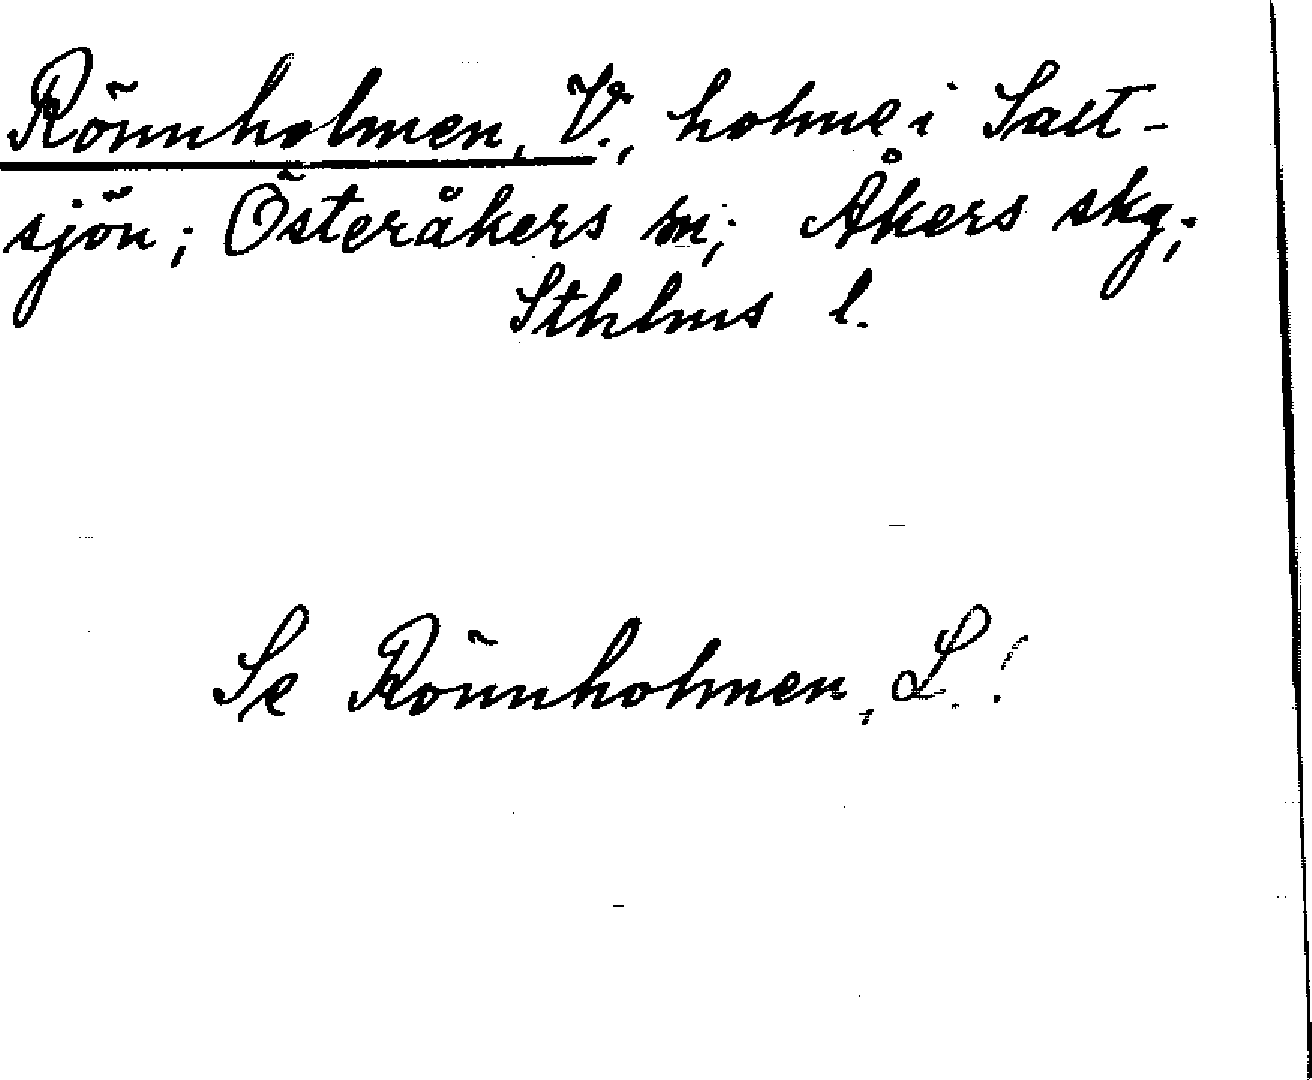 Rönnholmen, V., holme i Salt-
sjön; Österåkers sn; Åkers skg;
Sthlms l.
Se Rönnholmen, L.!